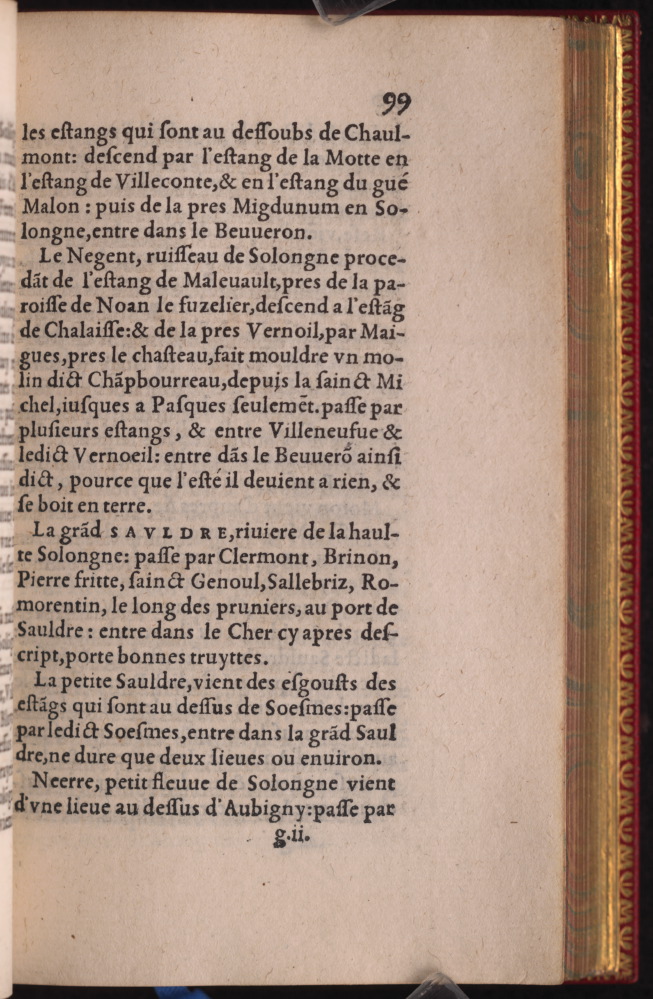 99
les eſtangs qui ſont au deſſoubs de Chaul-
mont: deſcend par l'eſtang de la Motte en
l'eſtang de Villeconte,& en l'eſtang du gué
Malon : puis de la pres Migdunum en So-
longne,entre dans le Beuueron.
Le Negent, ruiſſeau de Solongne proce-
dãt de l'eſtang de Maleuault,pres de la pa-
roiſſe de Noan le fuzelier,deſcend a l'eſtãg
de Chalaiſſe:& de la pres Vernoil,par Mai-
gues,pres le chaſteau,fait mouldre vn mo-
lin dict Chãpbourreau,depuis la ſainct Mi
chel,iuſques a Paſques ſeulemẽt.paſſe par
pluſieurs eſtangs , & entre Villeneufue &
ledict Vernoeil: entre dãs le Beuuerõ ainſi
dict , pource que l'eſté il deuient a rien, &
ſe boit en terre.
La grãd SAVLDRE,riuiere de la haul-
te Solongne: paſſe par Clermont, Brinon,
Pierre fritte, ſainct Genoul,Sallebriz, Ro-
morentin, le long des pruniers, au port de
Sauldre : entre dans le Cher cy apres deſ-
cript,porte bonnes truyttes.
La petite Sauldre,vient des eſgouſts des
eſtãgs qui ſont au deſſus de Soeſmes:paſſe
par ledict Soeſmes,entre dans la grãd Saul
dre,ne dure que deux lieues ou enuiron.
Neerre, petit fleuue de Solongne vient
d'vne lieue au deſſus d'Aubigny:paſſe par
g.ii.